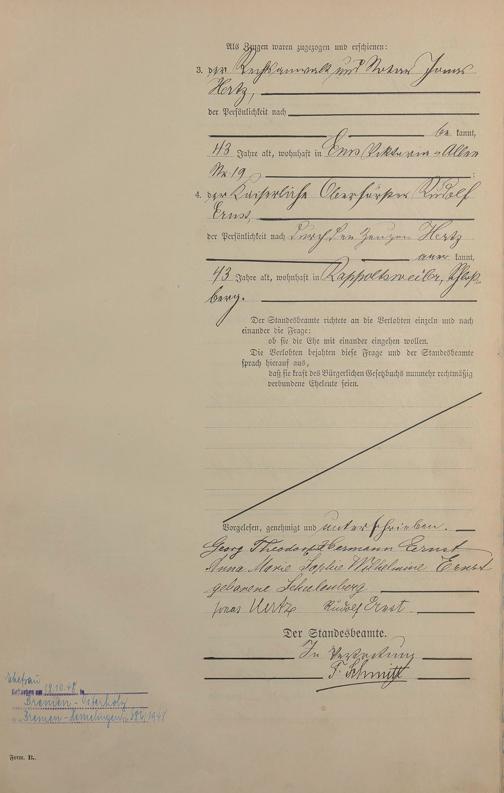 Als Zeugen waren zugezogen und erschienen:
3. der Rechtsanwalt und Notar Jonas
Hertz,
der Persönlichkeit nach
be kannt,
43 Jahre alt, wohnhaft in Ems Viktoria-Allee
No 19
4. der Kaiserliche Oberförster Rudolf
Ernst,
der Persönlichkeit nach durch den Zeugen Hertz
aner kannt,
43 Jahre alt, wohnhaft in Rappoltsweiler, Schloß-
berg.
Der Standesbeamte richtete an die Verlobten einzeln und nach
einander die Frage:
ob sie die Ehe mit einander eingehen wollen.
Die Verlobten bejahten diese Frage und der Standesbeamte
sprach hierauf aus,
daß sie kraft des Bürgerlichen Gesetzbuchs nunmehr rechtmäßig
verbundene Eheleute seien.
Vorgelesen, genehmigt und unterschrieben.
Georg Theodor Hermann Ernst
Anna Marie Sophie Wilhelmine Ernst
geborene Schulenberg
Jonas Hertz Rudolf Ernst
Der Standesbeamte.
In Vertretung
F. Schmitt
Ehefrau
Gestorben am 19.10.48 in
Bremen-Osterholz
Bremen-Hemelingen 1948
Form. B.